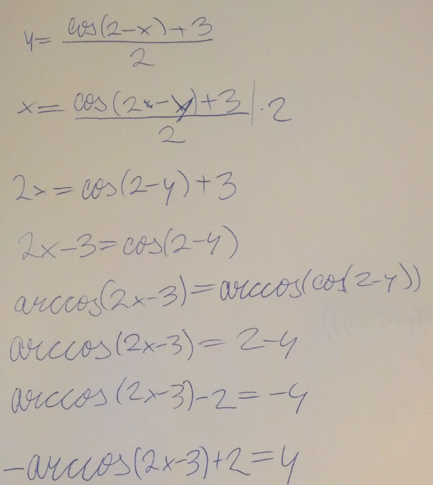 y = (cos(2-x)+3)/2
x = (cos(2-y)+3)/2 | ·2
2x = cos(2-y)+3
2x-3 = cos(2-y)
arccos(2x-3) = arccos(cos(2-y))
arccos(2x-3) = 2-y
arccos(2x-3)-2 = -y
-arccos(2x-3)+2 = y